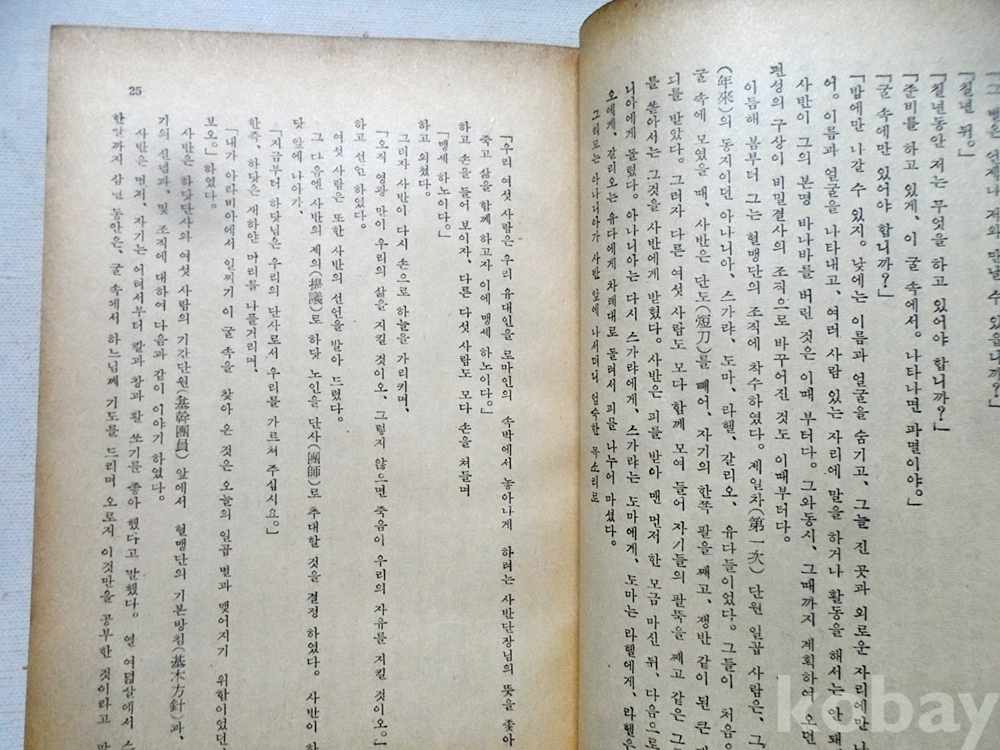 「그 방은 언제나 저와 만날 수 있읍니까?」
「칠년 뒤。」
「칠년동안 저는 무엇을 하고 있어야 합니까?」
「준비를 하고 있게、이 굴 속에서。나타나면 파멸이야。」
「굴 속에만 있어야 합니까?」
「밤에만 나갈 수 있지。낮에는 이름과 얼굴을 숨기고、그늘 진 곳과 외로운 자리에만 나
어。이름과 얼굴을 나타내고、여러 사람 있는 자리에 말을 하거나 활동을 해서는 안 돼
사반이 그의 본명 바나바를 버린 것은 이때 부터다。그와동시、그때까지 계획하여 오던
편성의 구상이 비밀결사의 조직으로 바꾸어진 것도 이때부터다。
이듬해 봄부터 그는 혈맹단의 조직에 착수하였다。제일차(第一次) 단원 일곱 사람은、그
(年來)의 동지이던 아나니아、스가랴、도마、라헬、갈리오、유다들이었다。그들이 처음
굴 속에 모였을 때、사반은 단도(短刀)를 빼어、자기의 한쪽 팔을 째고、쟁반 같이 된 큰
디를 받았다。그러자 다른 여섯 사람도 모다 함께 모여 들어 자기들의 팔뚝을 째고 같은 그
를 쏟아서는 그것을 사반에게 받혔다。사반은 피를 받아 맨 먼저 한 모금 마신 뒤、다음으로
니아에게 돌렸다。아나니아는 다시 스가랴에게、스가랴는 도마에게、도마는 라헬에게、라헬은
오에게、갈리오는 유다에게 차례대로 돌려서 피를 나누어 마셨다。
그리고는 아나니아가 사반 앞에 나서더니 엄숙한 목소리로
「우리 여섯 사람은 우리 유대인을 로마인의 속박에서 놓아나게 하려는 사반단장님의 뜻을 좇아
죽고 삶을 함께 하고자 이에 맹세 하노이다。」
하고 손을 들어 보이자、다른 다섯 사람도 모다 손을 쳐들며
「맹세 하노이다。」
하고 외쳤다。
그러자 사반이 다시 손으로 하늘을 가리키며、
「오직 영광 만이 우리의 삶을 지킬 것이오、그렇지 않으면 죽음이 우리의 자유를 지킬 것이오。」
하고 선언 하였다。
여섯 사람은 또한 사반의 선언을 받아 드렸다。
그 다음엔 사반의 제의(提議)로 하닷 노인을 단사(團師)로 추대할 것을 결정 하였다。사반이 하
닷 앞에 나아가、
「지금부터 하닷님은 우리의 단사로서 우리를 가르쳐 주십시요。」
한즉、하닷은 새하얀 머리를 나풀거리며、
「내가 아라비아에서 일찌기 이 굴 속을 찾아 온 것은 오늘의 일곱 별과 맺어지기 위함이었던
보오。」하였다。
사반은 하닷단사와 여섯 사람의 기간단원(基幹團員) 앞에서 혈맹단의 기본방침(基本方針)과、
기의 신념과、및 조직에 대하여 다음과 같이 이야기 하였다。
사반은 먼저、자기는 어려서부터 칼과 창과 활 쏘기를 좋아 했다고 말했다。열 여덟살에서 스
한살까지 삼년 동안은、굴 속에서 하느님께 기도를 드리며 오로지 이것만을 공부한 것이라고 말
25
kobay